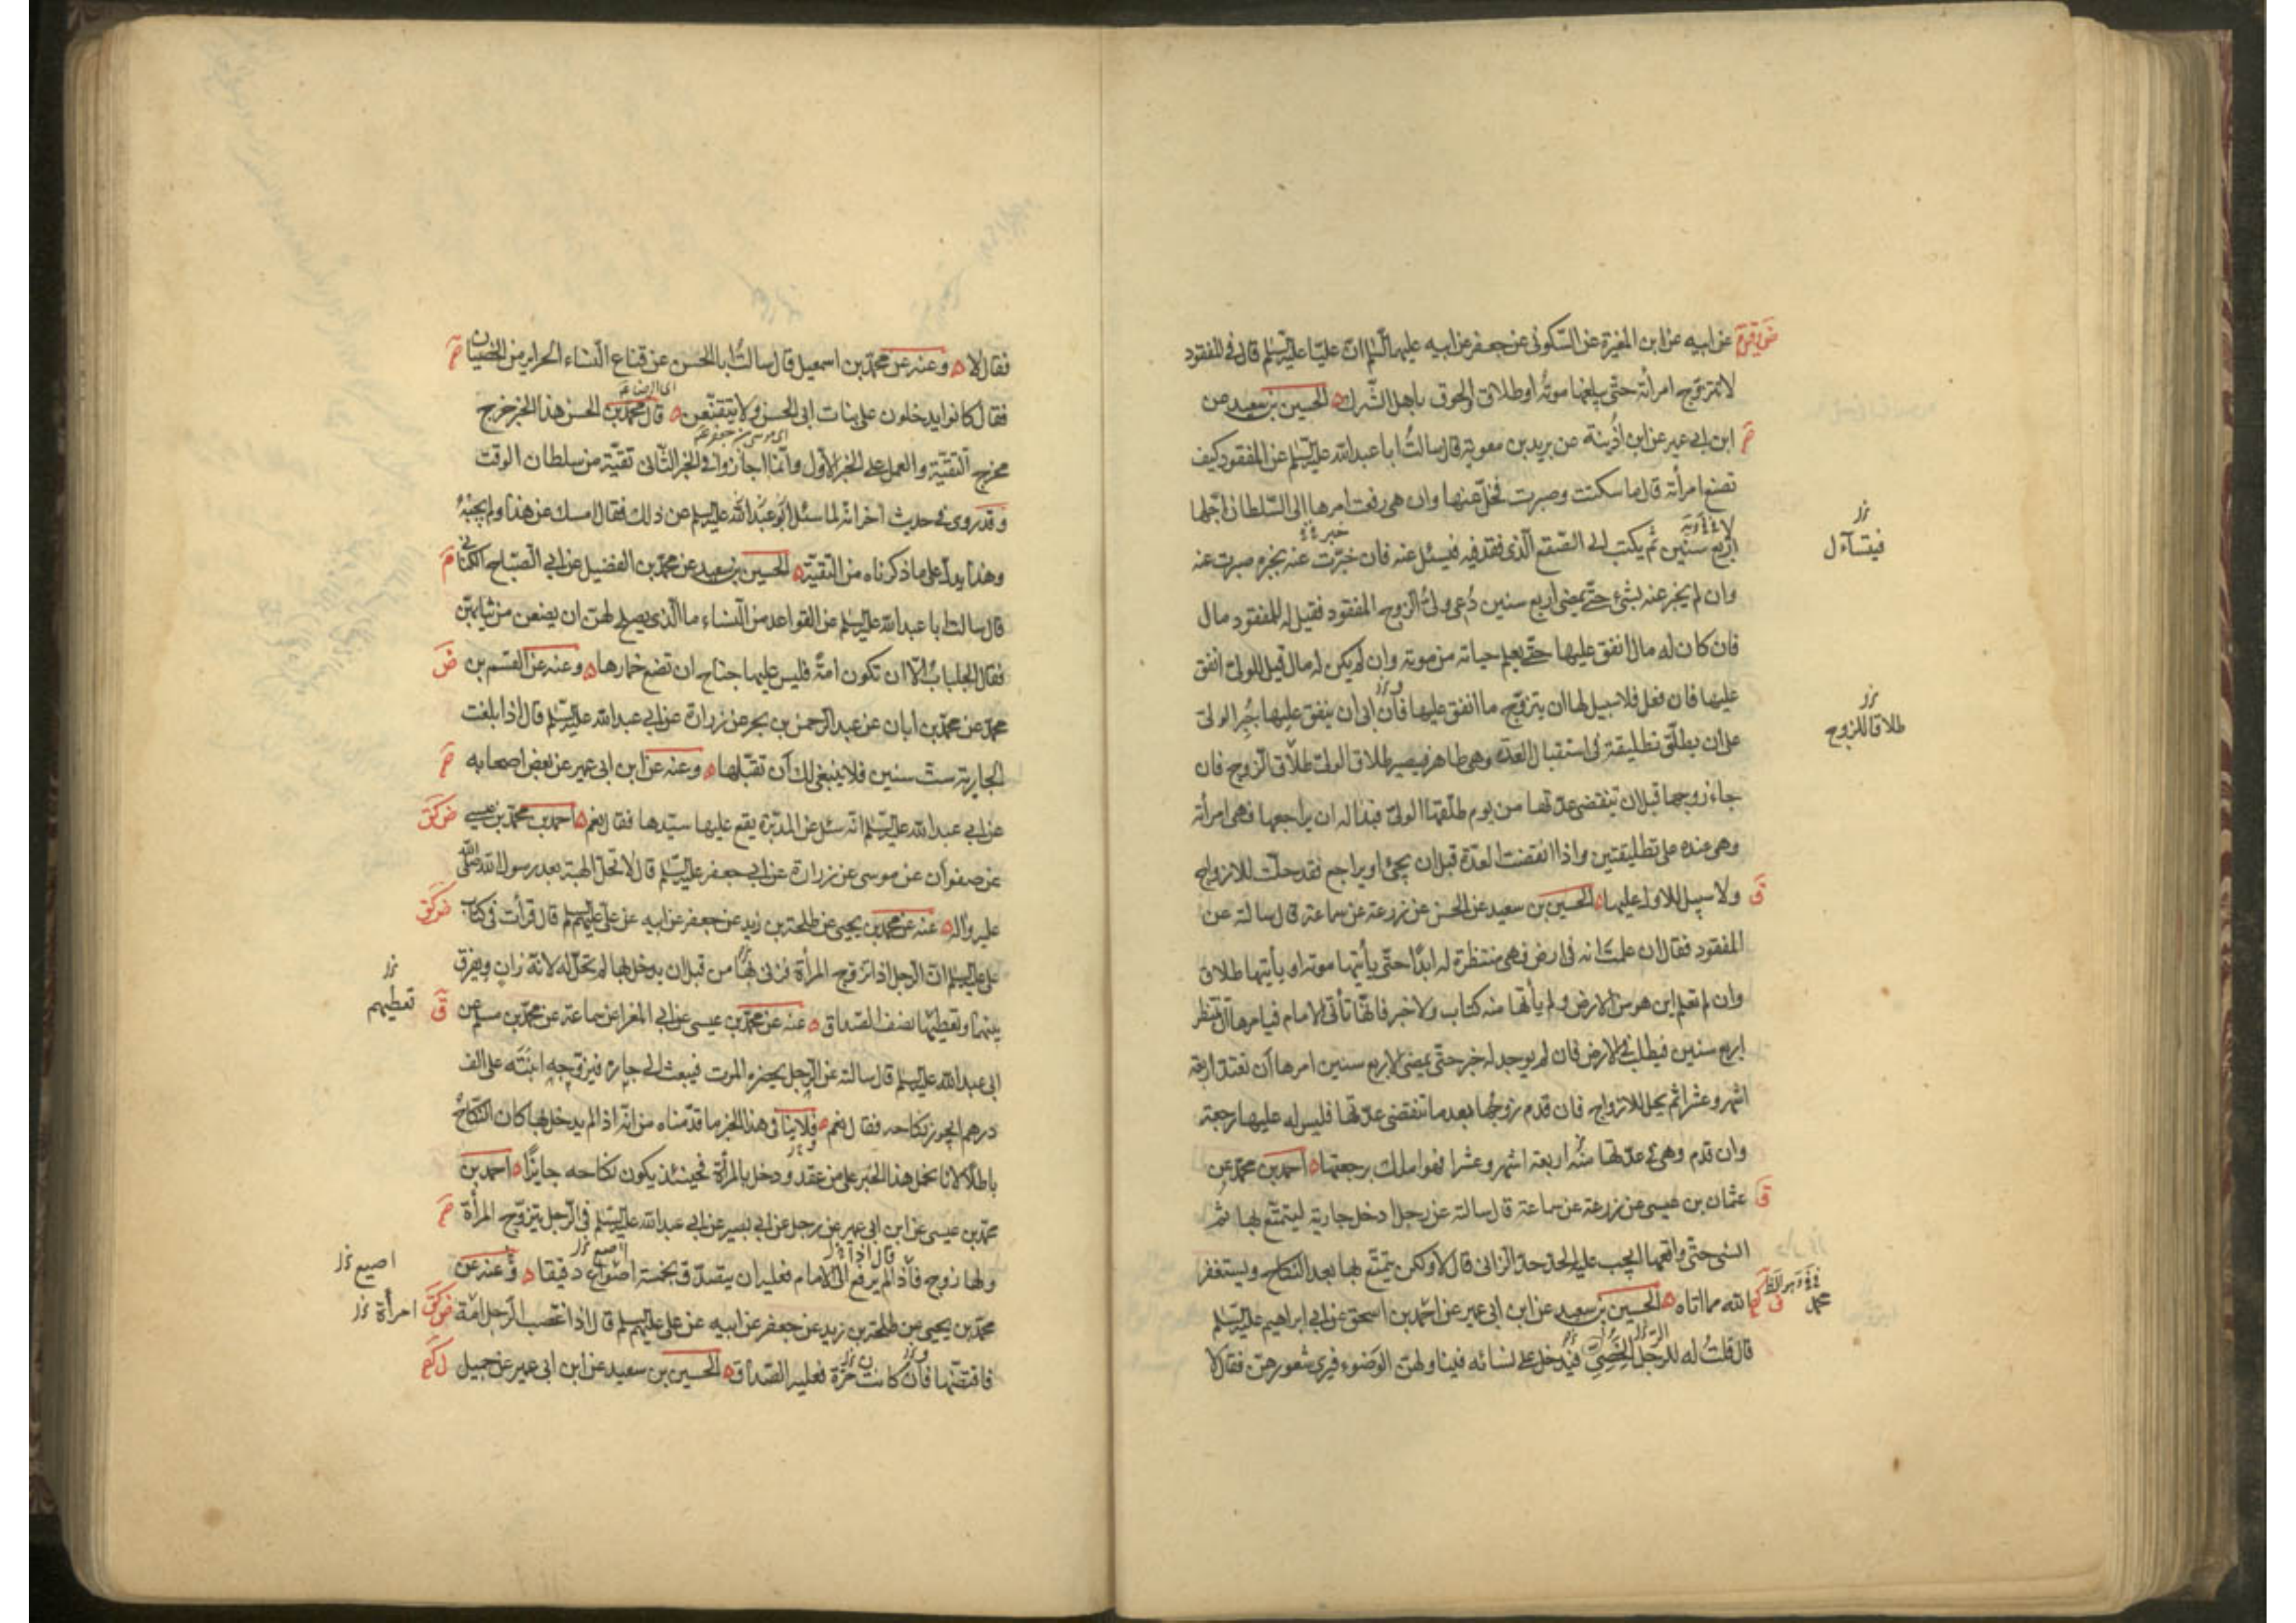 عن ابيه عن ابن المغيرة عن السكونى عن جعفر عن ابيه عليهما السلم ان عليا عليه السلم قال فى المفقود
لا تتزوج امرأته حتى يبلغها موته او طلاق او لحوق باهل الشرك الحسين بن سعيد عن
ابن ابى عمير عن ابن اذينة عن بريد بن معوية قال سالت ابا عبد الله عليه السلم عن المفقود كيف
تصنع امرأته قال ما سكتت وصبرت فخل عنها وان هى رفعت امرها الى السلطان اجلها
فيتسآءل
اربع سنين ثم يكتب الى الصقع الذى فقد فيه فيسئل عنه فان خبرت عنه بخبر صبرت عنه
وان لم يخبر عنه بشىء حتى يمضى اربع سنين دعى ولى الزوج المفقود فقيل له للمفقود مال
فان كان له مال انفق عليها حتى يعلم حياته من موته وان لم يكن له مال قيل للولى انفق
عليها فان فعل فلا سبيل لها ان يتزوج ما انفق عليها فان ابى ان ينفق عليها يجبر الولى
طلاقا للزوج
على ان يطلق تطليقة فى استقبال العدة وهى طاهر فيصير طلاق الولى طلاق الزوج فان
جاء زوجها قبل ان تنقضى عدتها من يوم طلقها الولى فبدا له ان يراجعها فهى امرأته
وهى عنده على تطليقتين واذا انقضت العدة قبل ان يجئ او يراجع فقد حلت للازواج
ق ولا سبيل للاول عليها الحسين بن سعيد عن الحسن عن زرعة عن سماعة قال سالته عن
المفقود فقال ان علمت انه فى ارض فهى منتظرة له ابدا حتى يأتيها موته او يأتيها طلاق
وان لم تعلم اين هو من الارض ولم يأتها منه كتاب ولا خبر فانها تأتى الامام فيامرها ان تنتظر
اربع سنين فيطلب فى الارض فان لم يوجد له خبر حتى يمضى الاربع سنين امرها ان تعتد اربعة
اشهر وعشرا ثم يحل للازواج فان قدم زوجها بعد ما تنقضى عدتها فليس له عليها رجعة
وان قدم وهى فى عدتها منه اربعة اشهر وعشرا فهو املك برجعتها احمد بن محمد عن
ق عثمان بن عيسى عن زرعة عن سماعة قال سالته عن رجل ادخل جارية ليتمتع بها ثم
انسى حتى واقعها ايجب عليه الحد حد الزانى قال لا ولكن يتمتع بها بعد النكاح ويستغفر
الله مما اتاه الحسين بن سعيد عن ابن ابى عمير عن احمد بن اسحق عن ابى ابراهيم عليه السلم
محمد
قال قلت له للرجل الخصى فيدخل على نسائه فيناولهن الوضوء فيرى شعورهن فقال لا
فقال لا وعنه عن محمد بن اسمعيل قال سالت ابا الحسن عن قناع النساء الحراير من الخصيان
فقال كانوا يدخلون على بنات ابى الحسن ولا يتقنعن قال محمد بن الحسن هذا الخبر خرج
اى موسى بن جعفر
مخرج التقية والعمل على الخبر الاول وانما اجازوا فى الخبر الثانى تقية من سلطان الوقت
وقد روى فى حديث اخر انه لما سئل ابو عبد الله عليه السلم عن ذلك فقال امسك عن هذا ولم يجبه
وهذا يدل على ما ذكرناه من التقية الحسين بن سعيد عن محمد بن الفضيل عن ابى الصباح الكنانى
قال سالت ابا عبد الله عليه السلم عن القواعد من النساء ما الذى يصلح لهن ان يضعن من ثيابهن
فقال الجلباب الا ان تكون امة فليس عليها جناح ان تضع خمارها وعنه عن القسم بن
محمد عن محمد بن ابان عن عبد الرحمن بن بحر عن زرارة عن ابى عبد الله عليه السلم قال اذا بلغت
الجارية ست سنين فلا ينبغى لك ان تقبلها وعنه عن ابن ابى عمير عن بعض اصحابه
عن ابى عبد الله عليه السلم انه سئل عن المدبرة يقع عليها سيدها فقال نعم احمد بن محمد بن عيسى
عن صفوان عن موسى عن زرارة عن ابى جعفر عليه السلم قال لا تحل الهبة بعد رسول الله صلى الله
عليه واله عنه عن محمد بن يحيى عن طلحة بن زيد عن جعفر عن ابيه عن على عليهم السلم قال قرأت فى كتاب
على عليه السلم ان الرجل اذا تزوج المرأة فزنى بها من قبل ان يدخل بها لم تحل له لانه زان ويفرق
بينهما وتعطيها نصف الصداق عنه عن محمد بن عيسى عن ابى المغرا عن سماعة عن محمد بن مسلم عن ق
تعطيهم
ابى عبد الله عليه السلم قال سالته عن الرجل يحضره الموت فيبعث الى جاره فيزوجه ابنته على الف
درهم ايجوز نكاحه فقال نعم فلا ينافى هذا الخبر ما قدمناه من انه اذا لم يدخل بها كان النكاح
باطلا لانا نحمل هذا الخبر على من عقد ودخل بالمرأة فحينئذ يكون نكاحه جايزا احمد بن
محمد بن عيسى عن ابن ابى عمير عن رجل عن ابى بصير عن ابى عبد الله عليه السلم فى الرجل يتزوج المرأة
ولها زوج فاذا لم يرفع الى الامام فعليه ان يتصدق بخمسة اصواع دقيقا وعنه عن
اصيع
محمد بن يحيى عن طلحة بن زيد عن جعفر عن ابيه عن على عليهم السلم قال اذا اغتصب الرجل امة
امرأة
فاقتضها فان كانت حرة فعليه الصداق الحسين بن سعيد عن ابن ابى عمير عن جميل